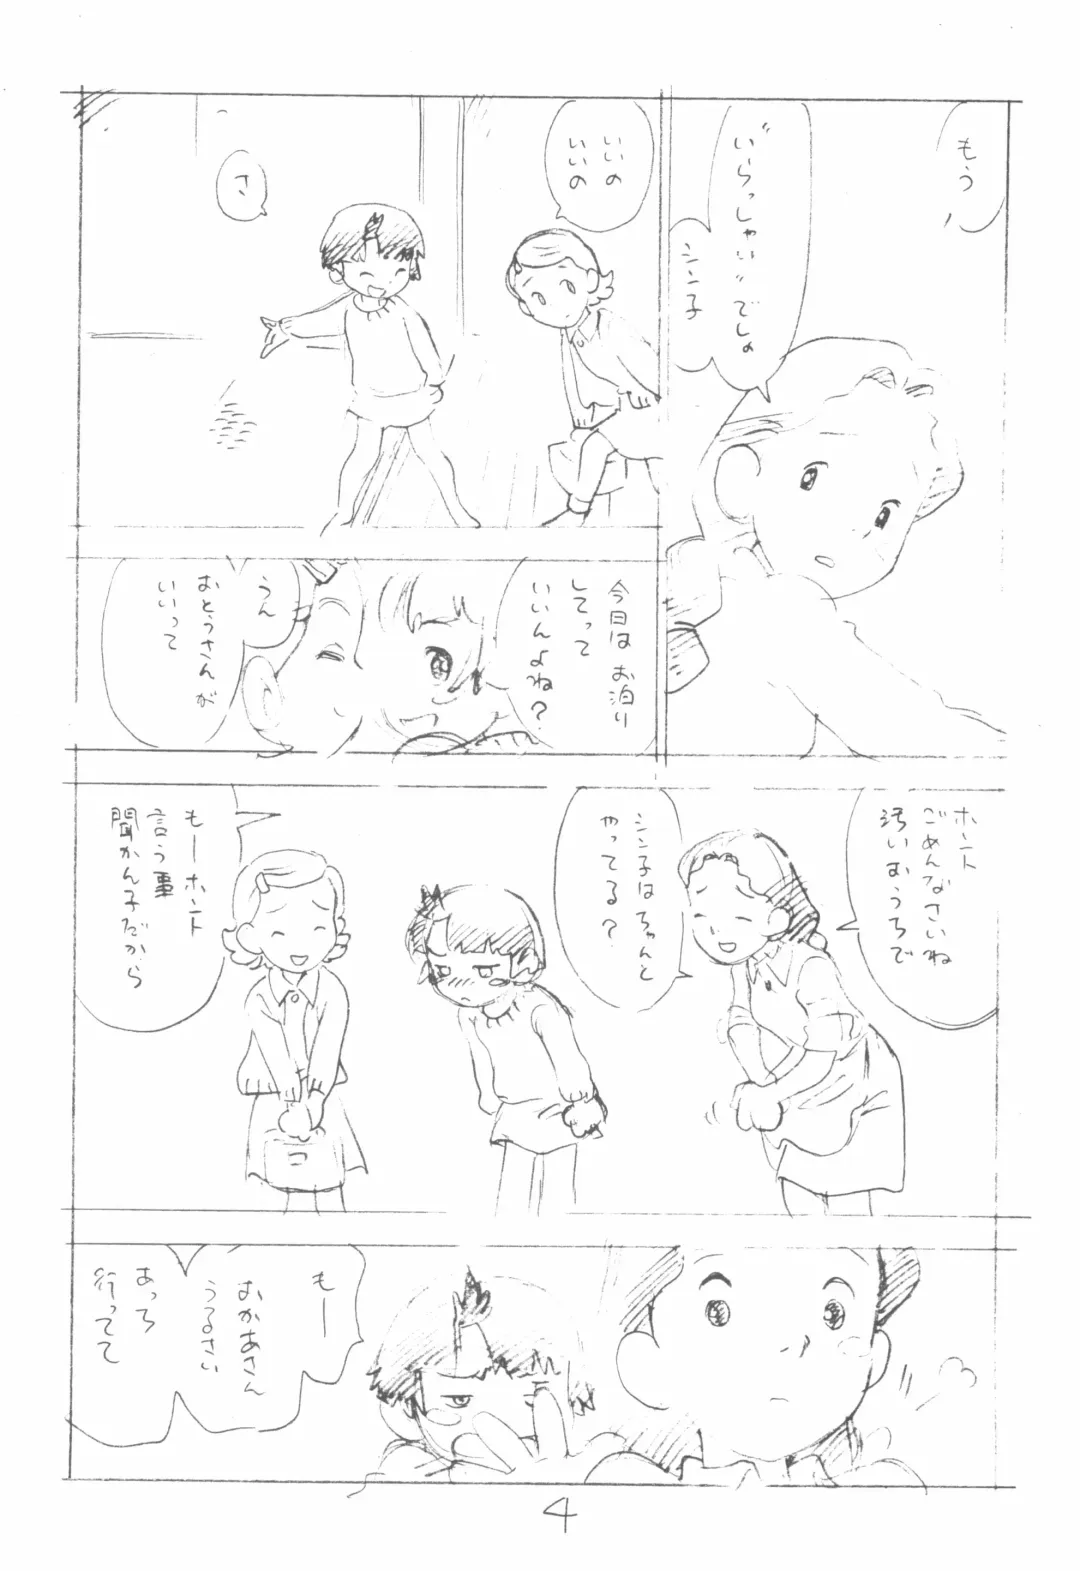 もう
“いらっしゃい”でしょ
シン子
いいの
いいの
さ
今日はお泊り
してって
いいんよね?
うん
おとうさんが
いいって
ホント
ごめんなさいね
汚いおうちで
シン子はちゃんと
やってる?
もーホント
言う事
聞かん子だから
もー
おかあさん
うるさい
あっち
行ってて
4